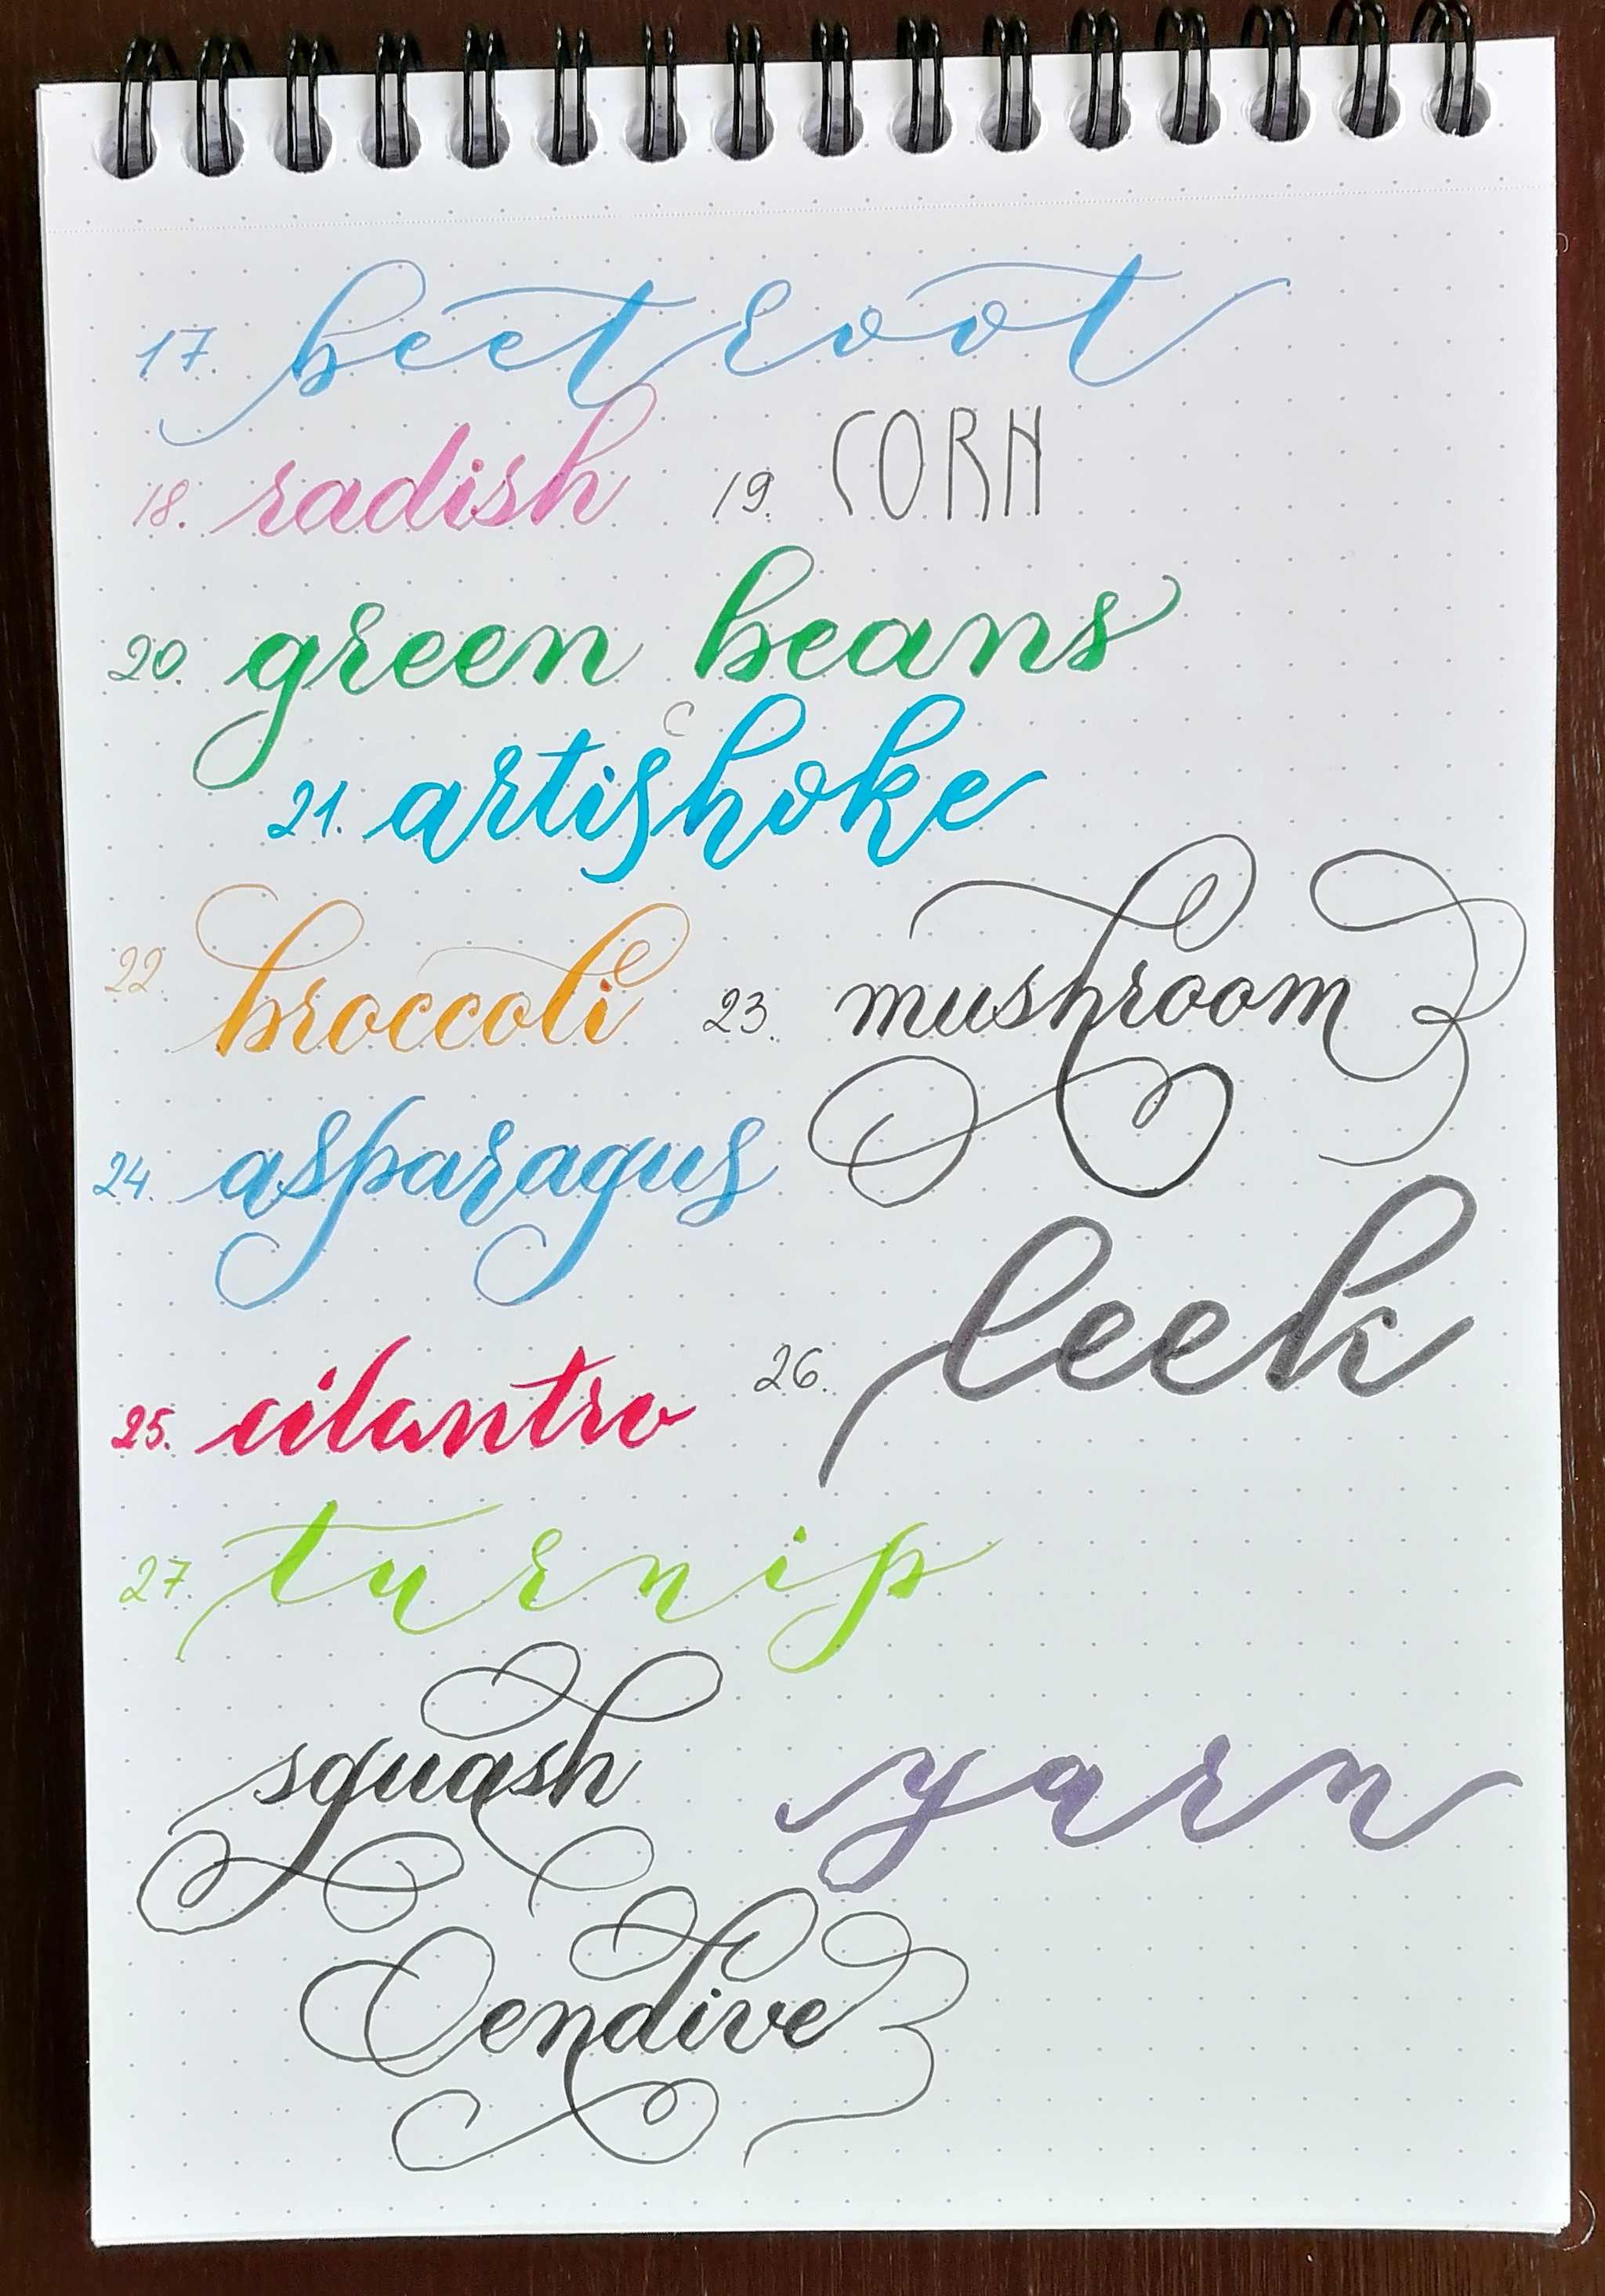 17. beet root
18. radish 19. CORN
20. green beans
c
21. artishoke
22. broccoli 23. mushroom
24. asparagus
25. cilantro 26. leek
27. turnip
squash yarn
endive